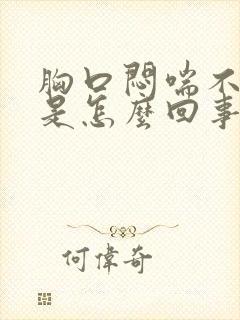 胸口悶喘不
是怎麼回事
何偉奇